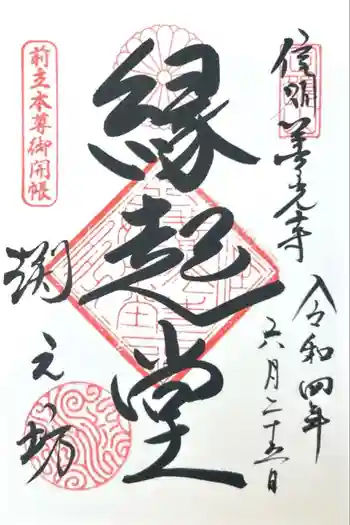 信州善光寺
令和四年
六月二十五日
縁起堂
前立本尊御開帳
渕之坊